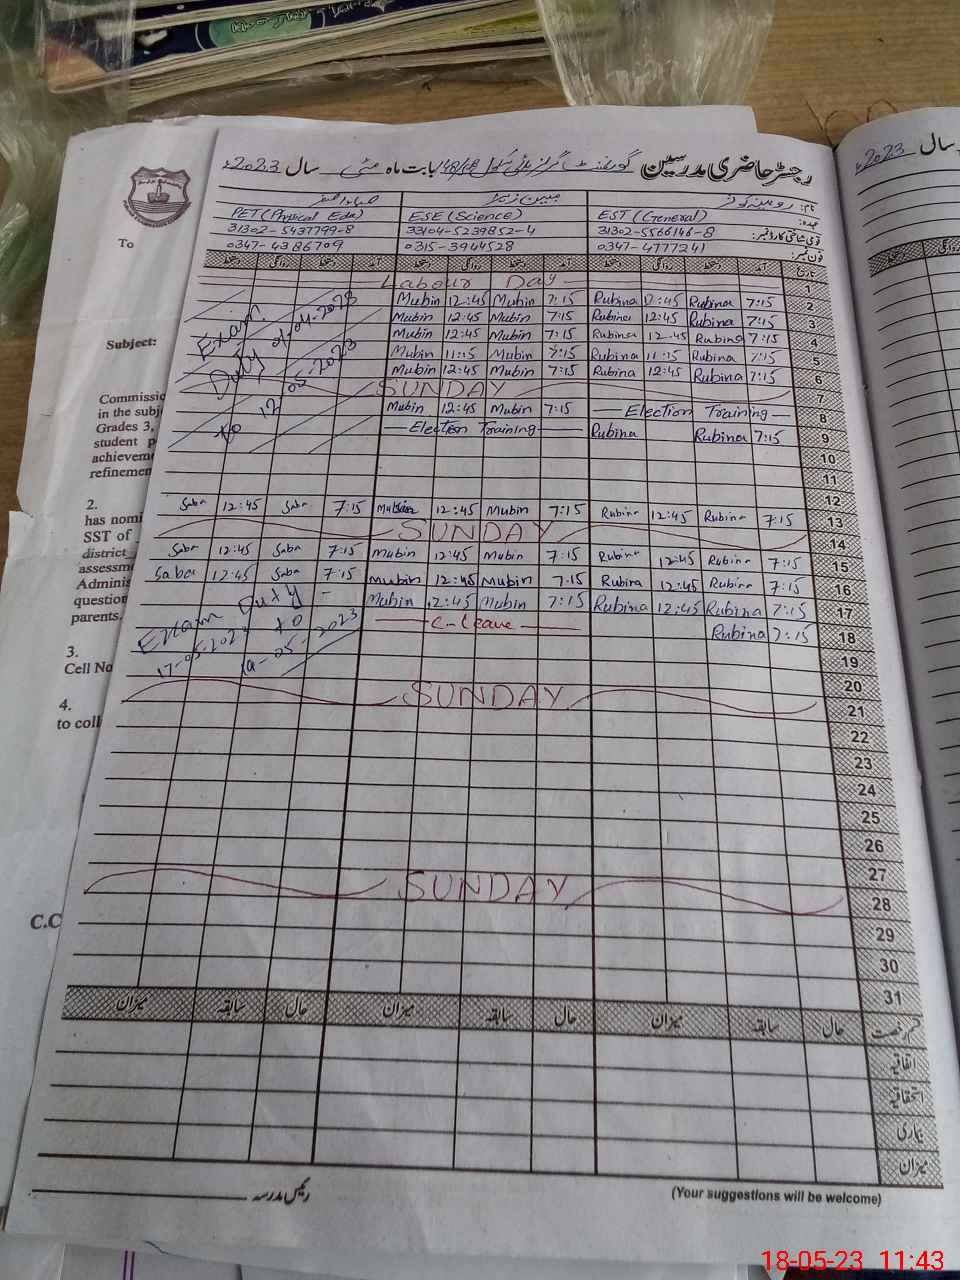 رجسٹر حاضری مدرسین گورنمنٹ گرلز سکول بابت ماہ مئی سال 2023ء
سال 2023ء
نام: روبینہ کوثر
صباء اصغر
عہدہ: EST (General) ESE (Science) PET (Physical Edu)
قومی شناختی کارڈ نمبر: 31302-5566146-8 33104-5239852-4 31302-5437799-8
فون نمبر: 0347-4777241 0315-3944528 0347-4386709
تاریخ آمد دستخط روانگی دستخط آمد دستخط روانگی دستخط آمد دستخط روانگی دستخط
Labour Day 1
Mubin 12:45 Mubin 7:15 Rubina 12:45 Rubina 7:15 2
Mubin 12:45 Mubin 7:15 Rubina 12:45 Rubina 7:15 3
Mubin 12:45 Mubin 7:15 Rubina 12:45 Rubina 7:15 4
Mubin 11:15 Mubin 7:15 Rubina 11:15 Rubina 7:15 5
Mubin 12:45 Mubin 7:15 Rubina 12:45 Rubina 7:15 6
Exam
Duty 2023
to 12 05-2023
SUNDAY 7
Mubin 12:45 Mubin 7:15 Election Training 8
Election Training Rubina Rubina 7:15 9
10
11
12
Saba 12:45 Saba 7:15 Mubin 12:45 Mubin 7:15 Rubina 12:45 Rubina 7:15 13
SUNDAY 14
Saba 12:45 Saba 7:15 Mubin 12:45 Mubin 7:15 Rubina 12:45 Rubina 7:15 15
Saba 12:45 Saba 7:15 Mubin 12:45 Mubin 7:15 Rubina 12:45 Rubina 7:15 16
Mubin 12:45 Mubin 7:15 Rubina 12:45 Rubina 7:15 17
C-Leave Rubina 7:15 18
Exam Duty
17-05-2023 to
-05-2023
19
20
SUNDAY 21
22
23
24
25
26
27
SUNDAY 28
29
30
31
قسم رخصت حال سابقہ میزان حال سابقہ میزان حال سابقہ میزان
اتفاقیہ
استحقاقیہ
بیماری
میزان
رئیس مدرسہ
(Your suggestions will be welcome)
To
Subject:
Commissio
in the subj
Grades 3,
student p
achieveme
refinemen
2.
has nomi
SST of
district
assessme
Adminis
question
parents.
3.
Cell No
4.
to coll
C.C
18-05-23 11:43